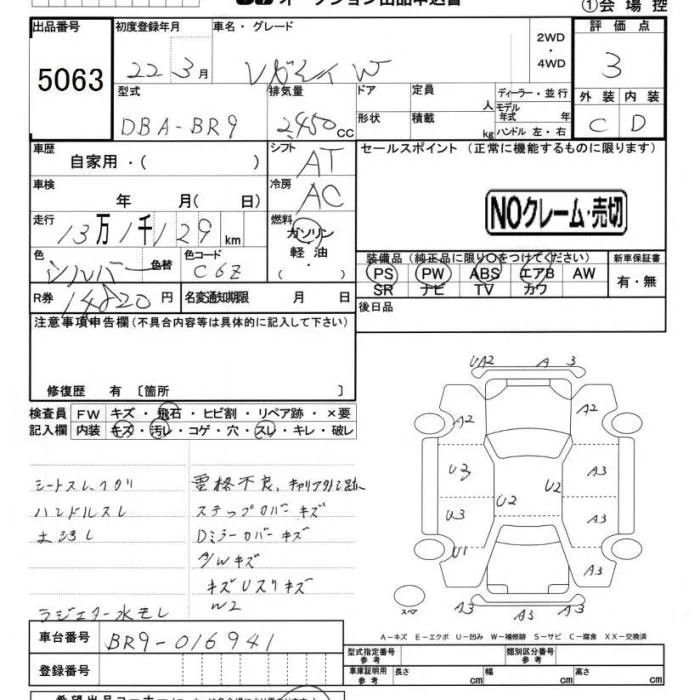 オークション出品申込書
①会場控
出品番号 初度登録年月 車名・グレード 2WD ・ 4WD 評価点
5063 22 3月 レガシィ W 3
型式 排気量 ドア 定員 人 ディーラー・並行 外装 内装
DBA-BR9 2450 CC 形状 積載 kg モデル年式 年 C D
ハンドル 左・右
車歴 自家用・( ) シフト AT セールスポイント (正常に機能するものに限ります)
車検 年 月( 日) 冷房 AC
NOクレーム・売切
走行 13万1千129 km 燃料 ガソリン 軽油 ( ・ )
色 シルバー 色替 色コード C6Z 装備品 (純正品に限り○をつけてください) 新車保証書
PS PW ABS エアB AW 有・無
SR ナビ TV カワ
R券 14820円 名変通知期限 月 日 後日品
注意事項申告欄(不具合内容等は具体的に記入して下さい)
修復歴 有 〔箇所 〕
検査員 FW キズ・飛石・ヒビ割・リペア跡・×要
記入欄 内装 キズ・汚レ・コゲ・穴・スレ・キレ・破レ
シートスレ、ヘタリ
ハンドルスレ
土汚レ
ラジエター水モレ
キャリア外し跡
ステップカバーキズ
Dミラーカバーキズ
A/Wキズ
キズUスリキズ
W2
UA2 A 3
A2 A2
U3 A3
U2 U2
U3 A3
U1 A3
スペア A3 A3 A3
A-キズ E-エクボ U-凹み W-補修跡 S-サビ C-腐食 XX-交換済
車台番号 BR9-016941
型式指定番号 参考 類別区分番号 参考
登録番号 車庫証明用 参考 長さ cm 幅 cm 高さ cm
希望出品コーナー